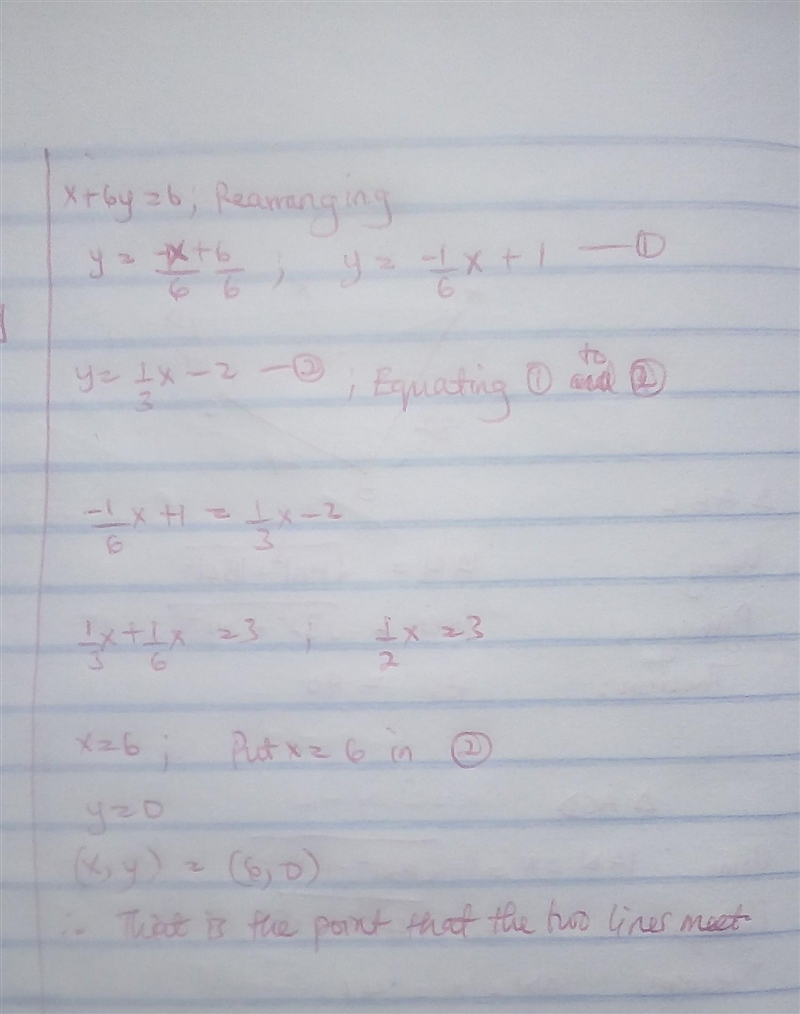 x+6y=6; Rearranging
y = -x/6 + 6/6 ; y = -1/6 x + 1 — ①
y = 1/3 x - 2 — ② ; Equating ① to ②
-1/6 x + 1 = 1/3 x - 2
1/3 x + 1/6 x = 3 ; 1/2 x = 3
x=6 ; Put x = 6 in ②
y=0
(x, y) = (6, 0)
∴ That is the point that the two lines meet